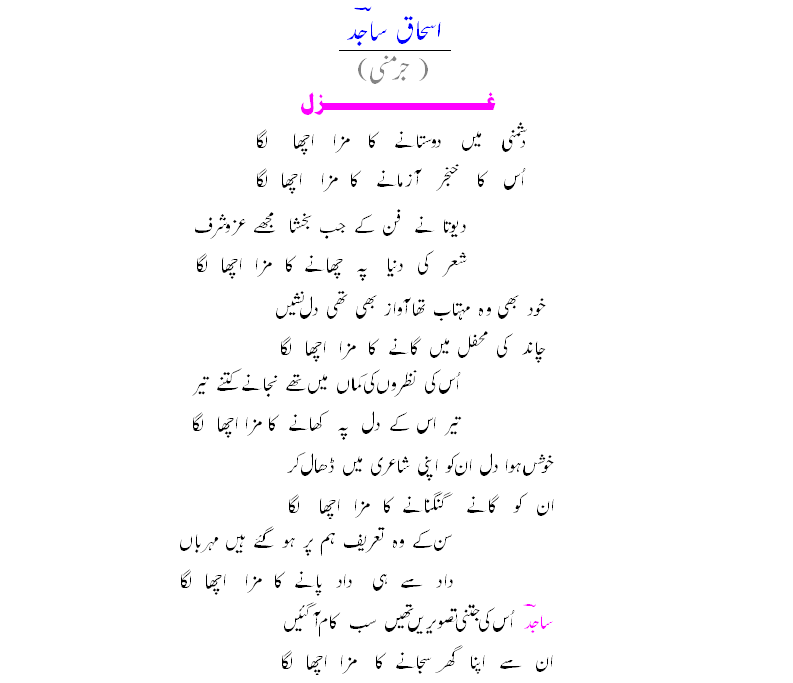 اسحاق ساجدؔ
( جرمنی )
غـــــــزل
دشمنی میں دوستانے کا مزا اچھا لگا
اُس کا خنجر آزمانے کا مزا اچھا لگا
دیوتا نے فن کے جب بخشا مجھے عزوشرف
شعر کی دنیا پہ چھانے کا مزا اچھا لگا
خود بھی وہ مہتاب تھا آواز بھی تھی دل نشیں
چاند کی محفل میں گانے کا مزا اچھا لگا
اُس کی نظروں کی کماں میں تھے نجانے کتنے تیر
تیر اس کے دل پہ کھانے کا مزا اچھا لگا
خوش ہوا دل ان کو اپنی شاعری میں ڈھال کر
ان کو گانے گنگنانے کا مزا اچھا لگا
سن کے وہ تعریف ہم پر ہو گئے ہیں مہرباں
داد سے ہی داد پانے کا مزا اچھا لگا
ساجدؔ اُس کی جتنی تصویریں تھیں سب کام آ گئیں
ان سے اپنا گھر سجانے کا مزا اچھا لگا